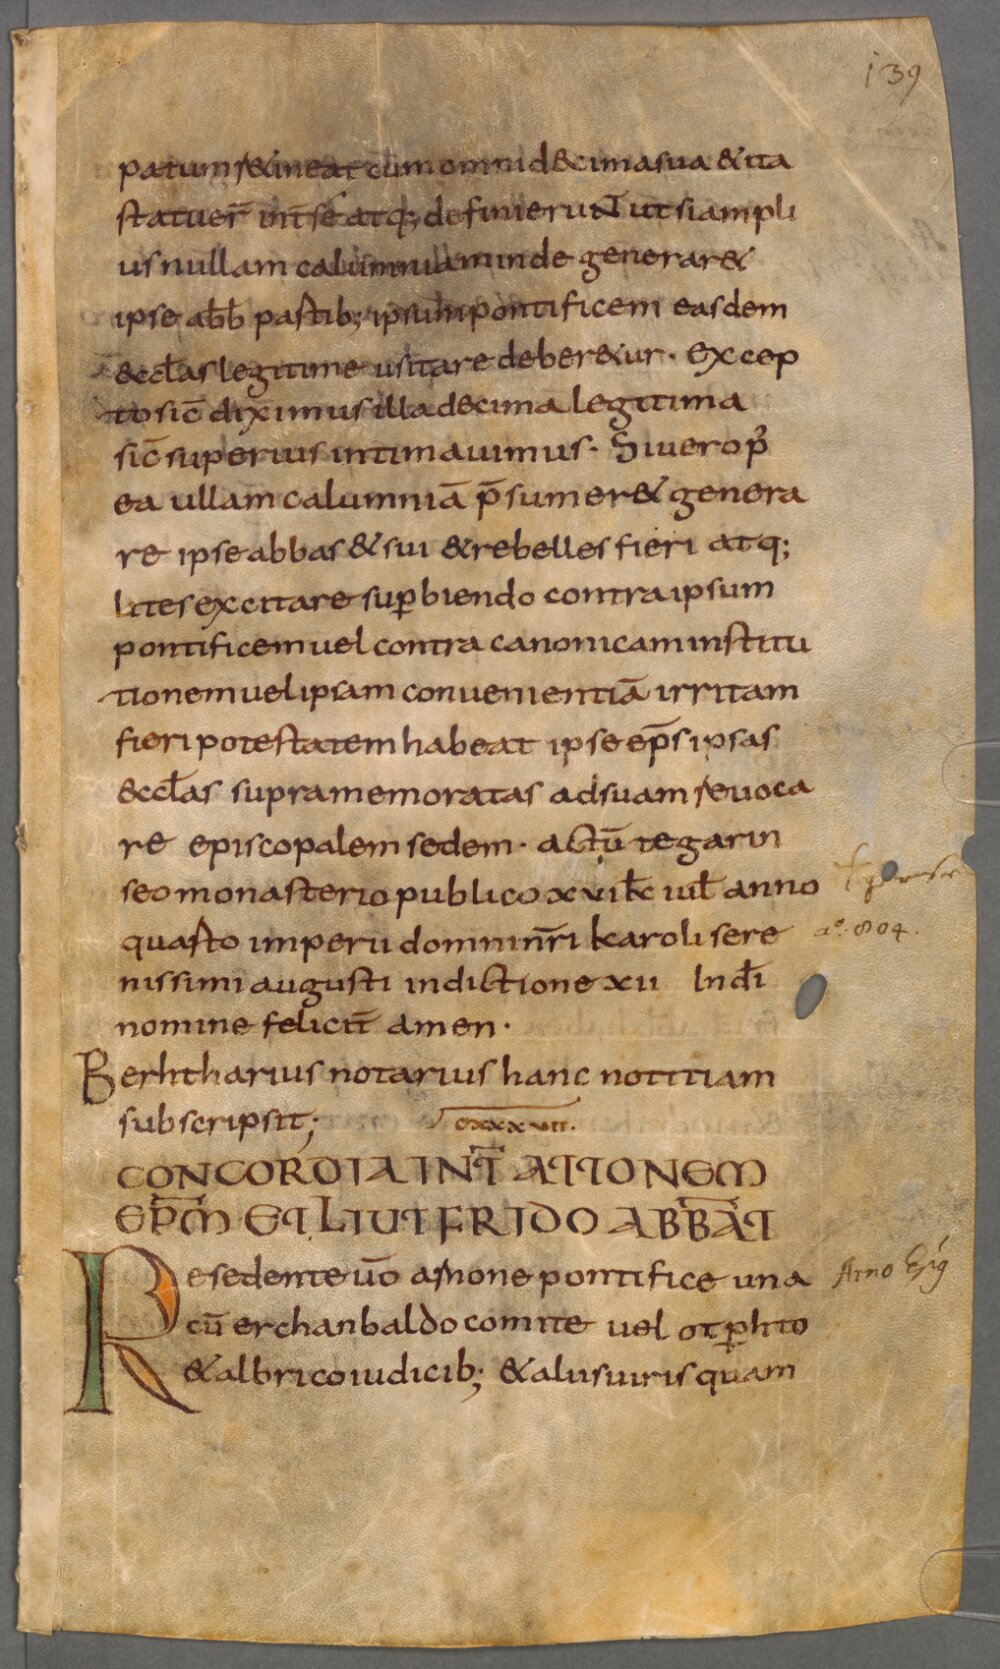 139
patum retineat cum omni decima sua & ita
statuer̄ int̄ se atq; definieruNt ut si ampli
us nullam calumniam inde generar&
ipse abb̄ pastib; ipsum pontificem easdem
&ccl̄as legitime usitare deber&ur· excep
to sic̄ diximus illa decima legitima
sic̄ superius intimauimus· Si uero p̄
ea ullam calumniā p̄sumer& genera
re ipse abbas & sui & rebelles fieri atq;
lites excitare sup̱biendo contra ipsum
pontificem uel contra canonicam institu
tionem uel ipsam conuenientiā irritam
fieri potestatem habeat ipse ep̄s ipsas
&ccl̄as supra memoratas ad suam reuoca
re episcopalem sedem· actū tegarin
seo monasterio publico xvi kl̄ iul̄ anno
quarto imperii domni nr̄i karoli sere
nissimi augusti indictione xii In dī
nomine felicit̄ amen·
aº. 804.
Berhtharius notarius hanc notitiam
subscripsit;
cxxxvii.
CONCORDIA INT̄ ATTONEM
EP̄M ET LIUTFRIDO ABBAT̄I
Resedente uō arnone pontifice una
cū erchanbaldo comite uel otp̱hto
& albrico iudicib; & aliis uiris quam
Arno Ep̄g